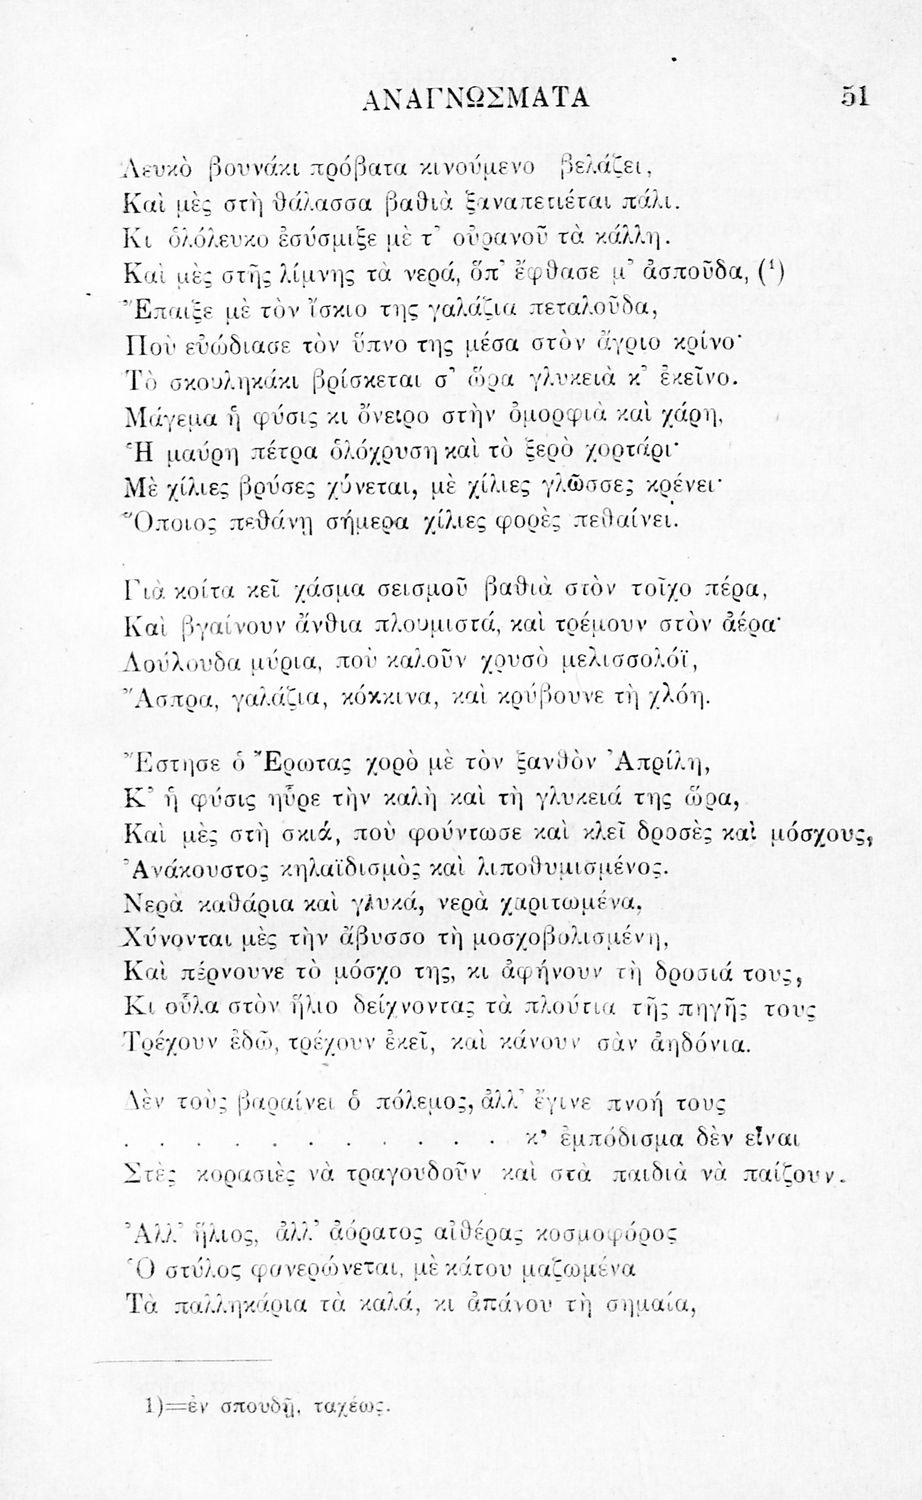 ΑΝΑΓΝΩΣΜΑΤΑ 51
Λευκὸ βουνάκι πρόβατα κινούμενο βελάζει,
Καὶ μὲς στὴ θάλασσα βαθιὰ ξαναπετιέται πάλι.
Κι ὁλόλευκο ἐσύσμιξε μὲ τ᾿ οὐρανοῦ τὰ κάλλη.
Καὶ μὲς στῆς λίμνης τὰ νερά, ὅπ᾿ ἔφθασε μ᾿ ἀσποῦδα, (¹)
Ἔπαιξε μὲ τὸν ἴσκιο της γαλάζια πεταλοῦδα,
Ποὺ εὐώδιασε τὸν ὕπνο της μέσα στὸν ἄγριο κρίνο·
Τὸ σκουληκάκι βρίσκεται σ᾿ ὥρα γλυκειὰ κ᾿ ἐκεῖνο.
Μάγεμα ἡ φύσις κι ὄνειρο στὴν ὀμορφιὰ καὶ χάρη,
Ἡ μαύρη πέτρα ὁλόχρυση καὶ τὸ ξερὸ χορτάρι·
Μὲ χίλιες βρύσες χύνεται, μὲ χίλιες γλῶσσες κρένει·
Ὅποιος πεθάνῃ σήμερα χίλιες φορὲς πεθαίνει.
Γιὰ κοίτα κεῖ χάσμα σεισμοῦ βαθιὰ στὸν τοῖχο πέρα,
Καὶ βγαίνουν ἄνθια πλουμιστά, καὶ τρέμουν στὸν ἀέρα·
Λούλουδα μύρια, ποὺ καλοῦν χρυσὸ μελισσολόϊ,
Ἄσπρα, γαλάζια, κόκκινα, καὶ κρύβουνε τὴ χλόη.
Ἔστησε ὁ Ἔρωτας χορὸ μὲ τὸν ξανθὸν Ἀπρίλη,
Κ᾿ ἡ φύσις ηὗρε τὴν καλὴ καὶ τὴ γλυκειά της ὥρα,
Καὶ μὲς στὴ σκιά, ποὺ φούντωσε καὶ κλεῖ δροσὲς καὶ μόσχους,
Ἀνάκουστος κηλαϊδισμὸς καὶ λιποθυμισμένος.
Νερὰ καθάρια καὶ γλυκά, νερὰ χαριτωμένα,
Χύνονται μὲς τὴν ἄβυσσο τὴ μοσχοβολισμένη,
Καὶ πέρνουνε τὸ μόσχο της, κι ἀφήνουν τὴ δροσιά τους,
Κι οὗλα στὸν ἥλιο δείχνοντας τὰ πλούτια τῆς πηγῆς τους
Τρέχουν ἐδῶ, τρέχουν ἐκεῖ, καὶ κάνουν σὰν ἀηδόνια.
Δὲν τοὺς βαραίνει ὁ πόλεμος, ἀλλ᾿ ἔγινε πνοή τους
. . . . . . . . . . . κ᾿ ἐμπόδισμα δὲν εἶναι
Στὲς κορασιὲς νὰ τραγουδοῦν καὶ στὰ παιδιὰ νὰ παίζουν.
Ἀλλ᾿ ἥλιος, ἀλλ᾿ ἀόρατος αἰθέρας κοσμοφόρος
Ὁ στύλος φανερώνεται, μὲ κάτου μαζωμένα
Τὰ παλληκάρια τὰ καλά, κι ἀπάνου τὴ σημαία,
1)=ἐν σπουδῇ, ταχέως.